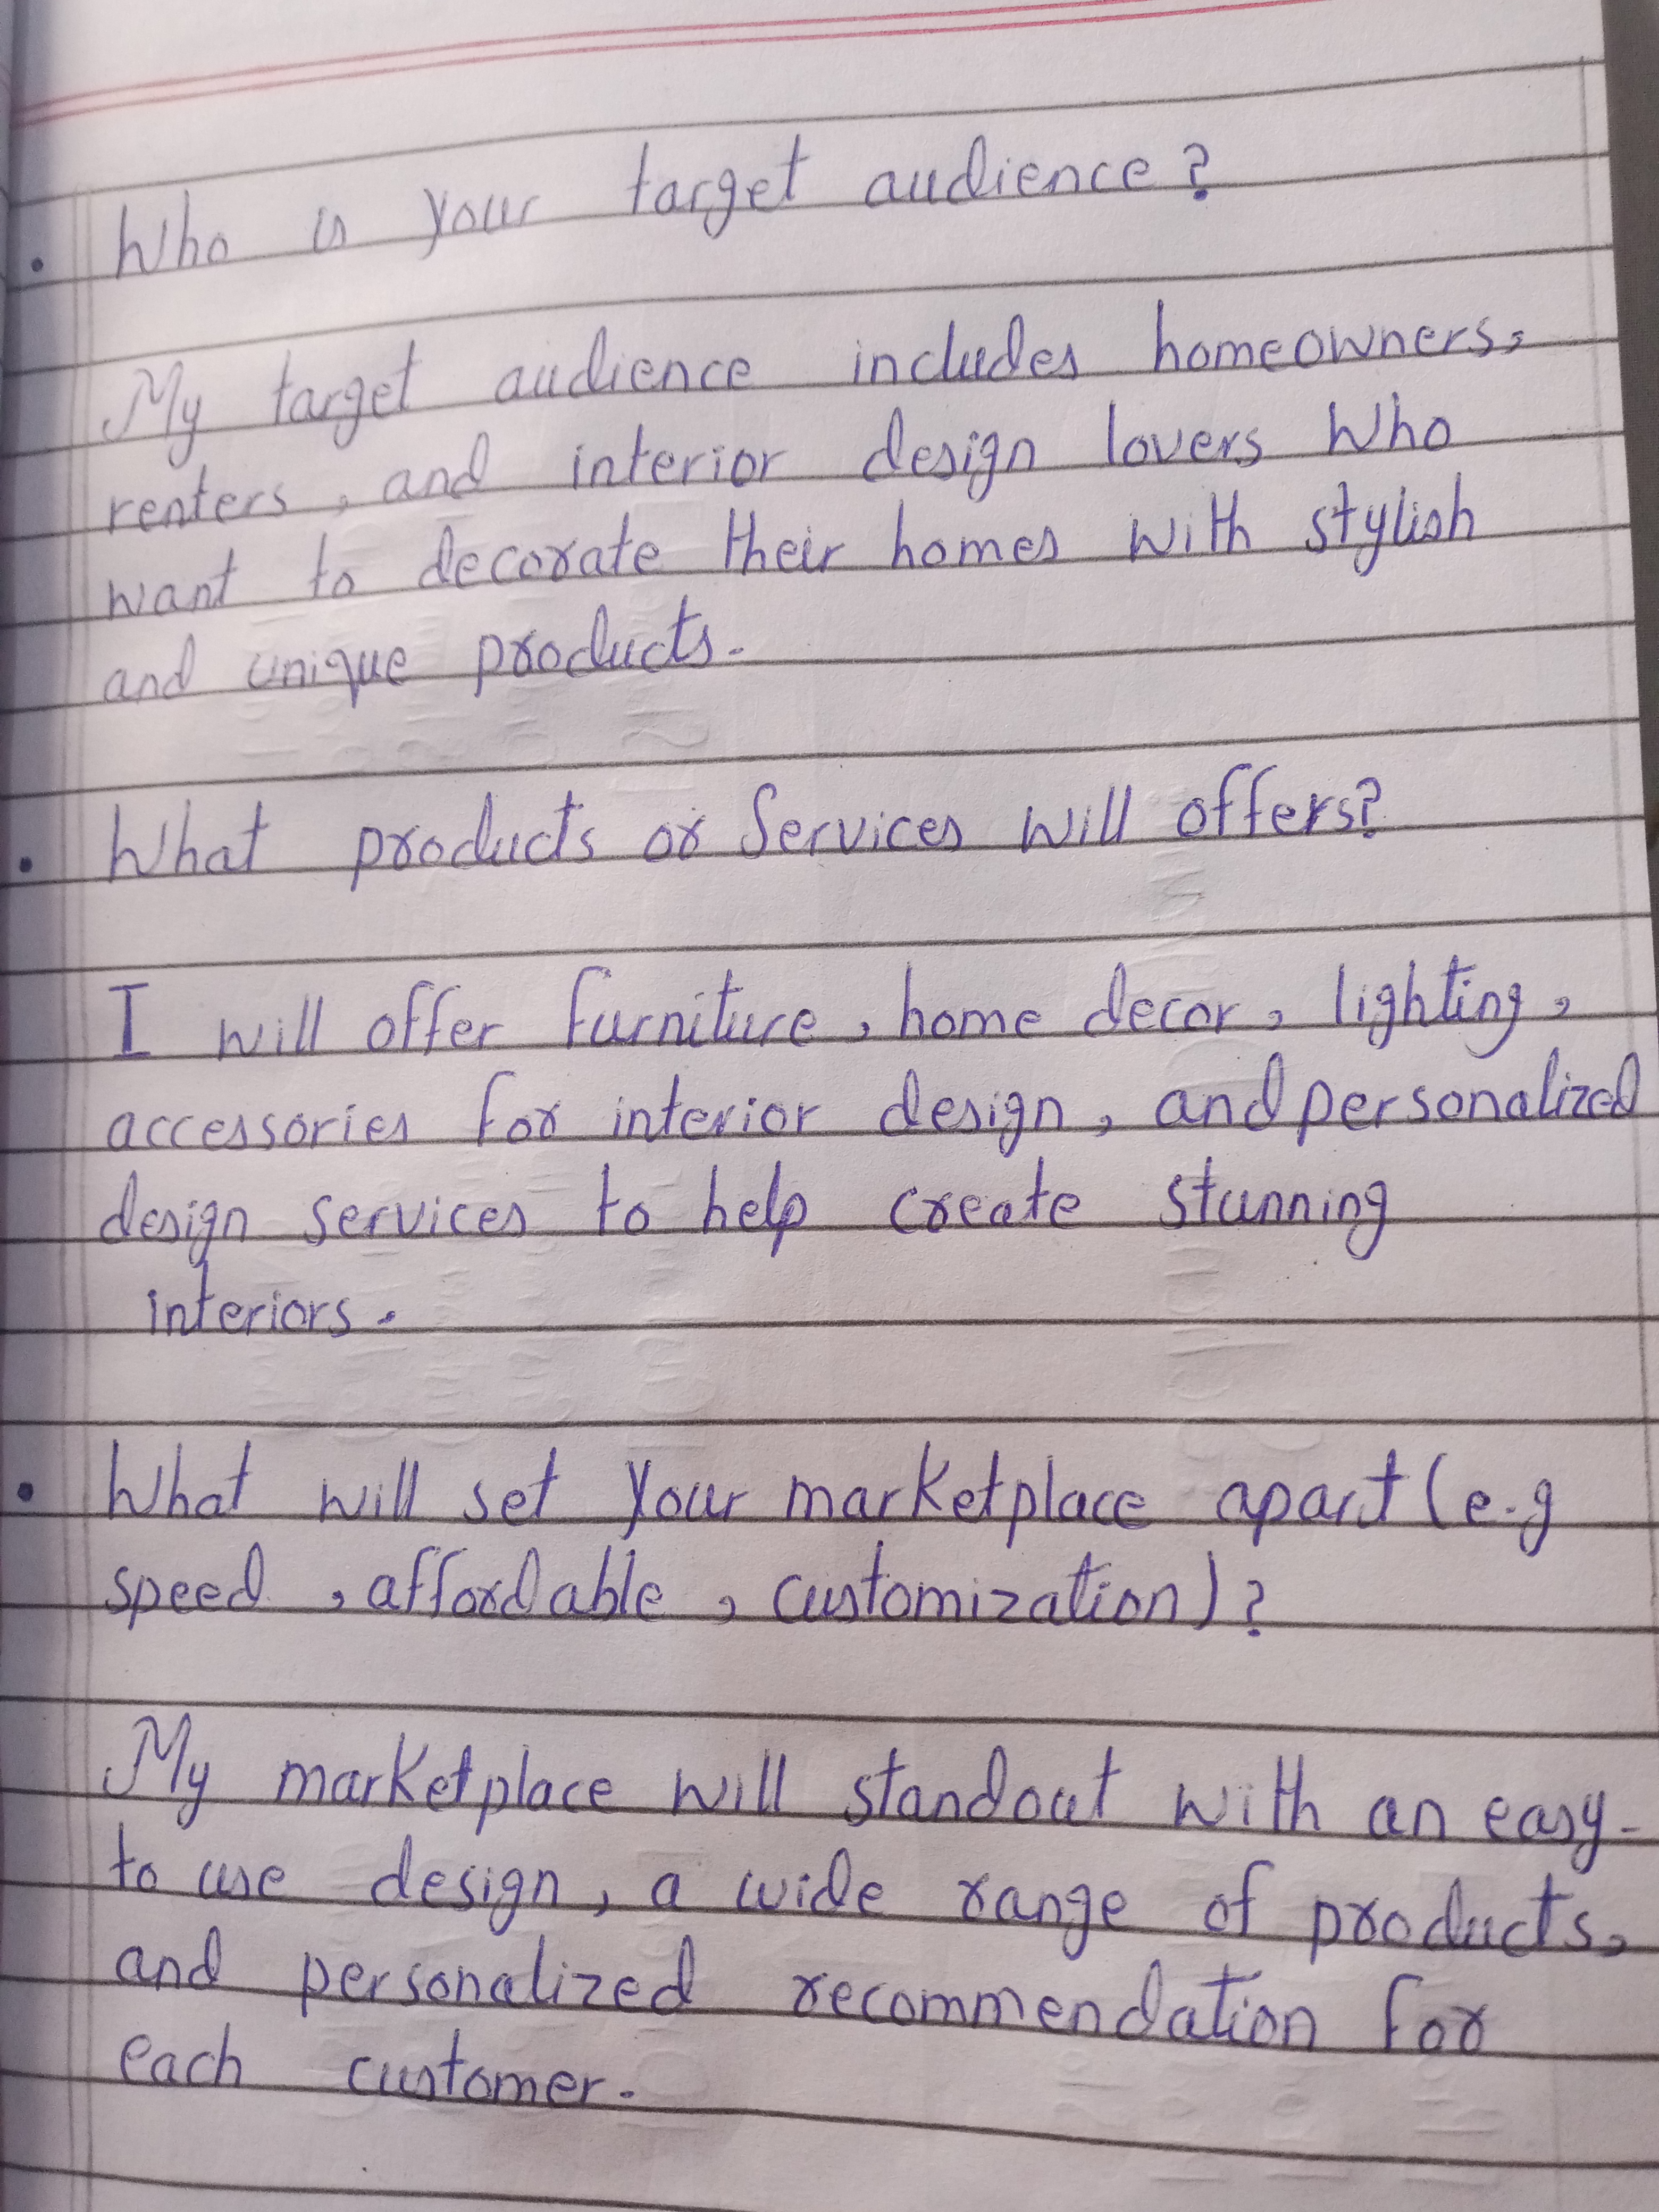 • Who is your target audience?
My target audience includes homeowners,
renters, and interior design lovers who
want to decorate their homes with stylish
and unique products.
• What products or Services will offers?
I will offer furniture, home decor, lighting,
accessories for interior design, and personalized
design services to help create stunning
interiors.
• What will set your marketplace apart (e.g
speed, affordable, customization)?
My marketplace will standout with an easy-
to use design, a wide range of products,
and personalized recommendation for
each customer.